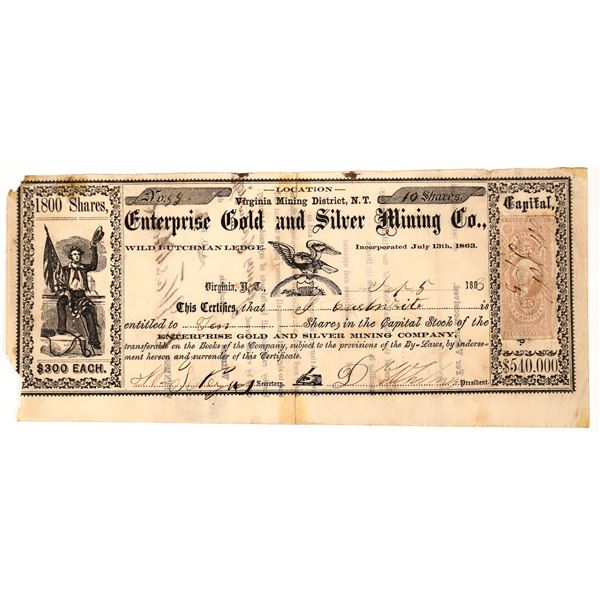 LOCATION
No. 55
Virginia Mining District, N. T.
10 Shares
1800 Shares,
Capital,
Enterprise Gold and Silver Mining Co.,
WILD DUTCHMAN LEDGE.
Incorporated July 13th, 1863.
Virginia, N. T., Sep 5 1863
This Certifies, that is
entitled to Ten Shares in the Capital Stock of the
ENTERPRISE GOLD AND SILVER MINING COMPANY,
transferable on the Books of the Company, subject to the provisions of the By-Laws, by indorse-
ment hereon and surrender of this Certificate.
Secretary.
President.
$300 EACH.
25
$540.000